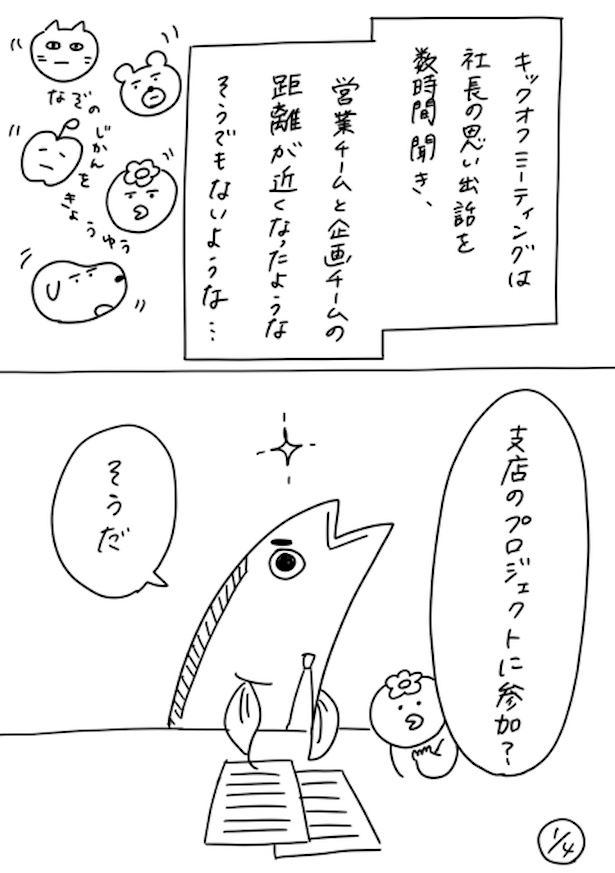 キックオフミーティングは
社長の思い出話を
数時間聞き、
営業チームと企画チームの
距離が近くなったような
そうでもないような…
なぞの
じかん
を
きょうゆう
支店のプロジェクトに参加?
そうだ
1/4